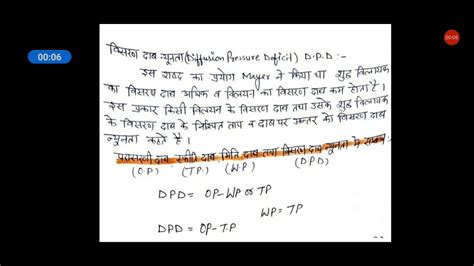 00:06
00:06
विसरण दाब न्यूनता (Diffusion Pressure Deficit) D.P.D :-
इस शब्द का प्रयोग Mayer ने किया था शुद्ध विलायक
का विसरण दाब अधिक व विलयन का विसरण दाब कम होता है।
इस प्रकार किसी विलयन के विसरण दाब तथा उसके शुद्ध विलायक
के विसरण दाब के निश्चित ताप व दाब पर अन्तर को विसरण दाब
न्यूनता कहते है।
परासरणी दाब, स्फीति दाब, भित्ति दाब तथा विसरण दाब न्यूनता में सम्बन्ध
(O.P) (T.P.) (W.P) (D.P.D)
DPD = OP-WP or TP
WP = TP
DPD = OP-T.P